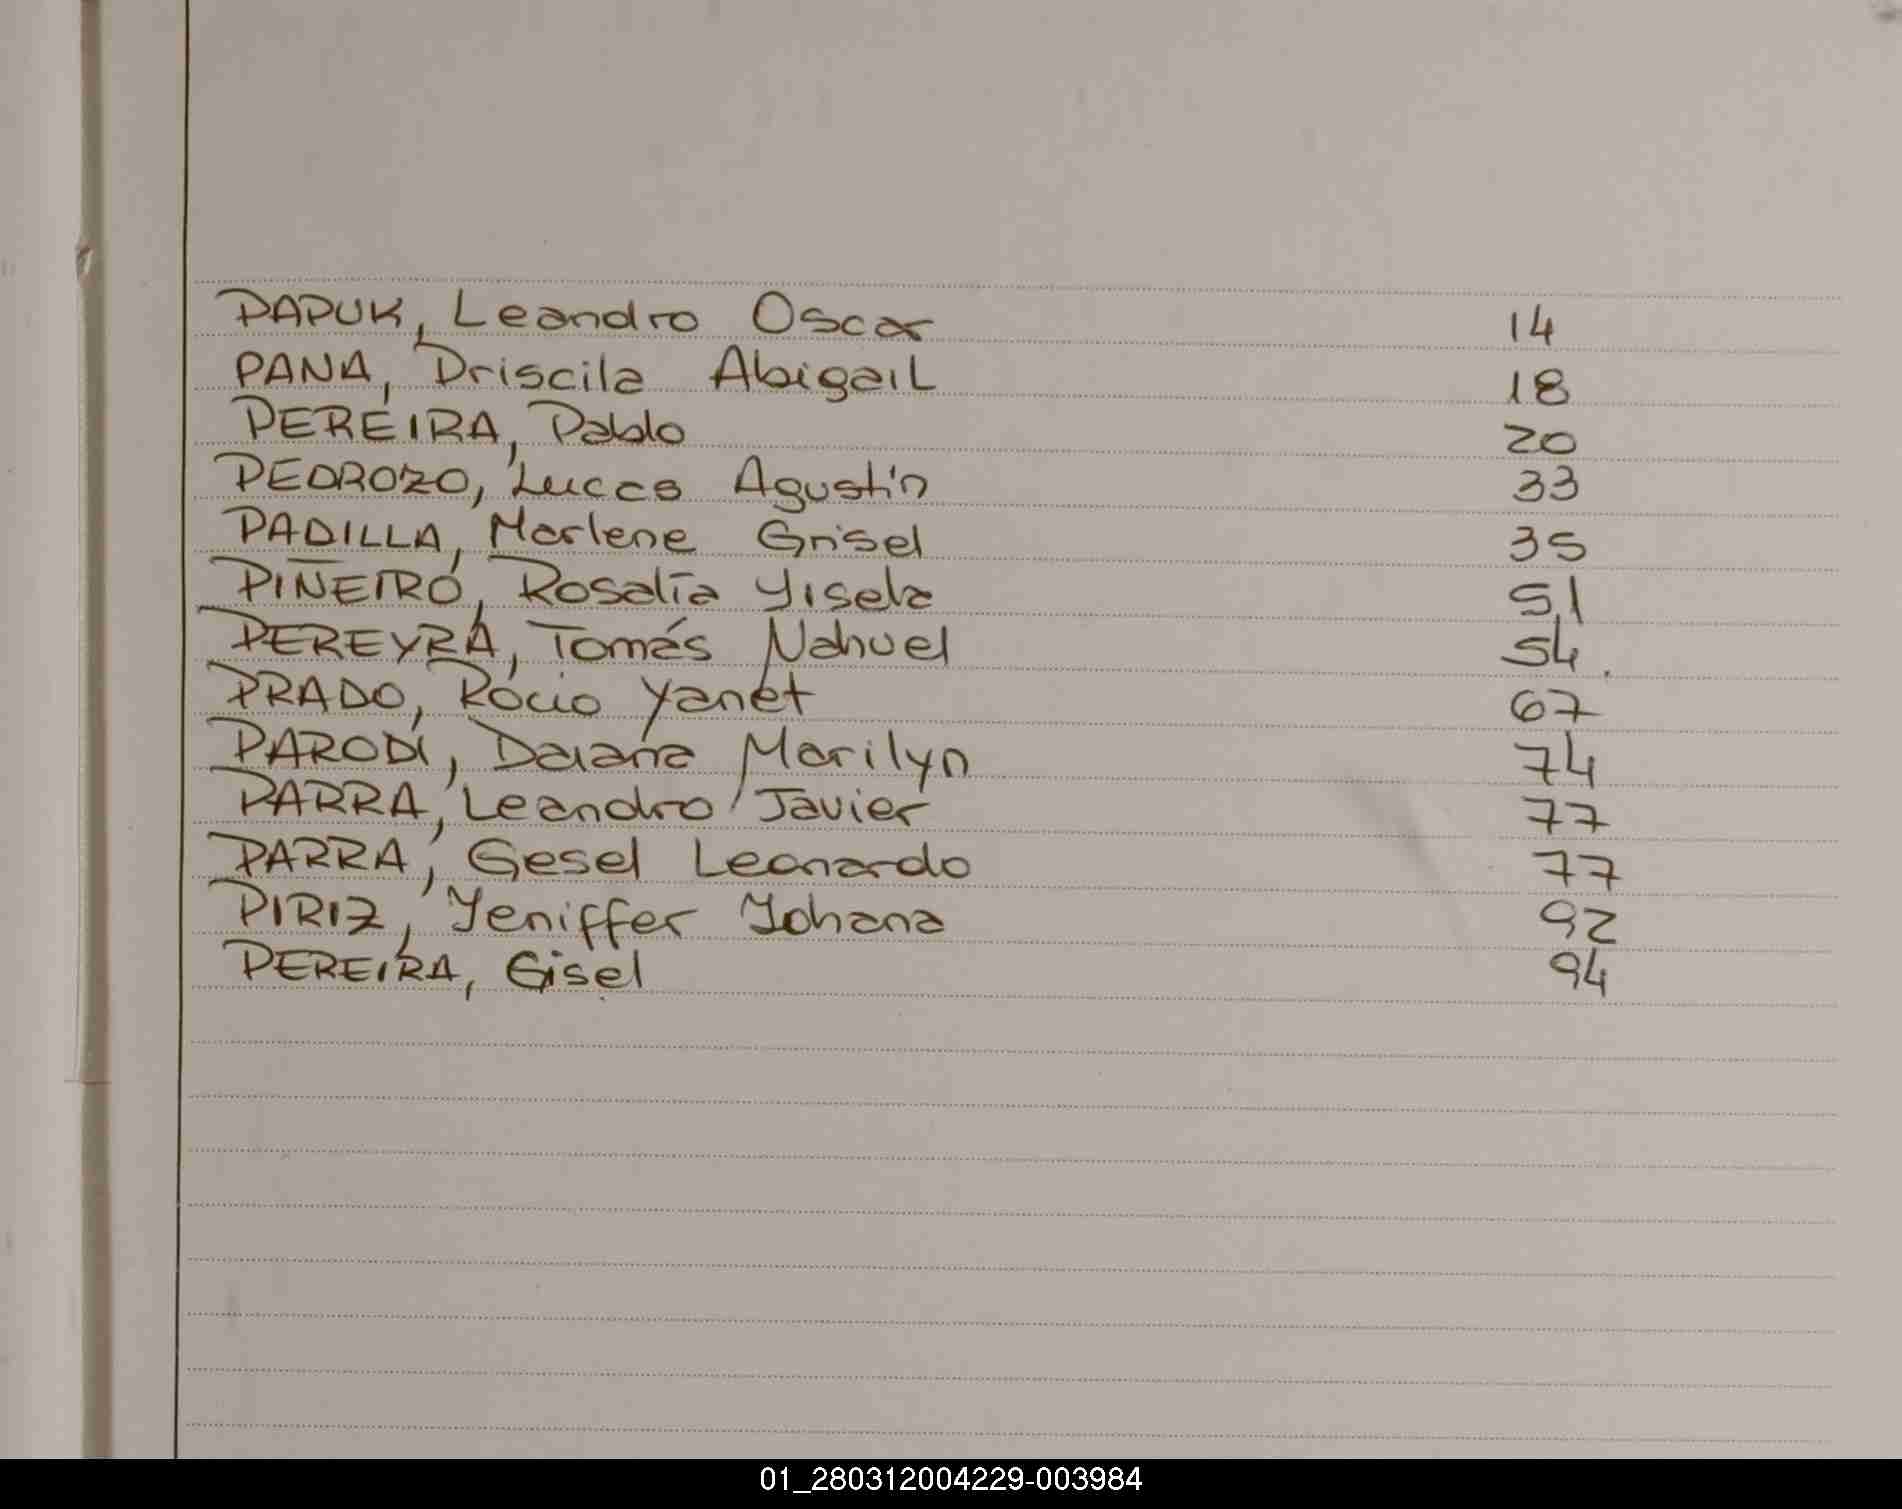 PAPUK, Leandro Oscar 14
PANA, Driscila Abigail 18
PEREIRA, Pablo 20
PEDROZO, Lucas Agustín 33
PADILLA, Marlene Grisel 35
PIÑEIRO, Rosalía Yisela 51
PEREYRA, Tomás Nahuel 54
PRADO, Rocio Yanet 67
PARODI, Daiana Marilyn 74
PARRA, Leandro Javier 77
PARRA, Gesel Leonardo 77
PIRIZ, Yeniffer Yohana 92
PEREIRA, Gisel 94
01_280312004229-003984